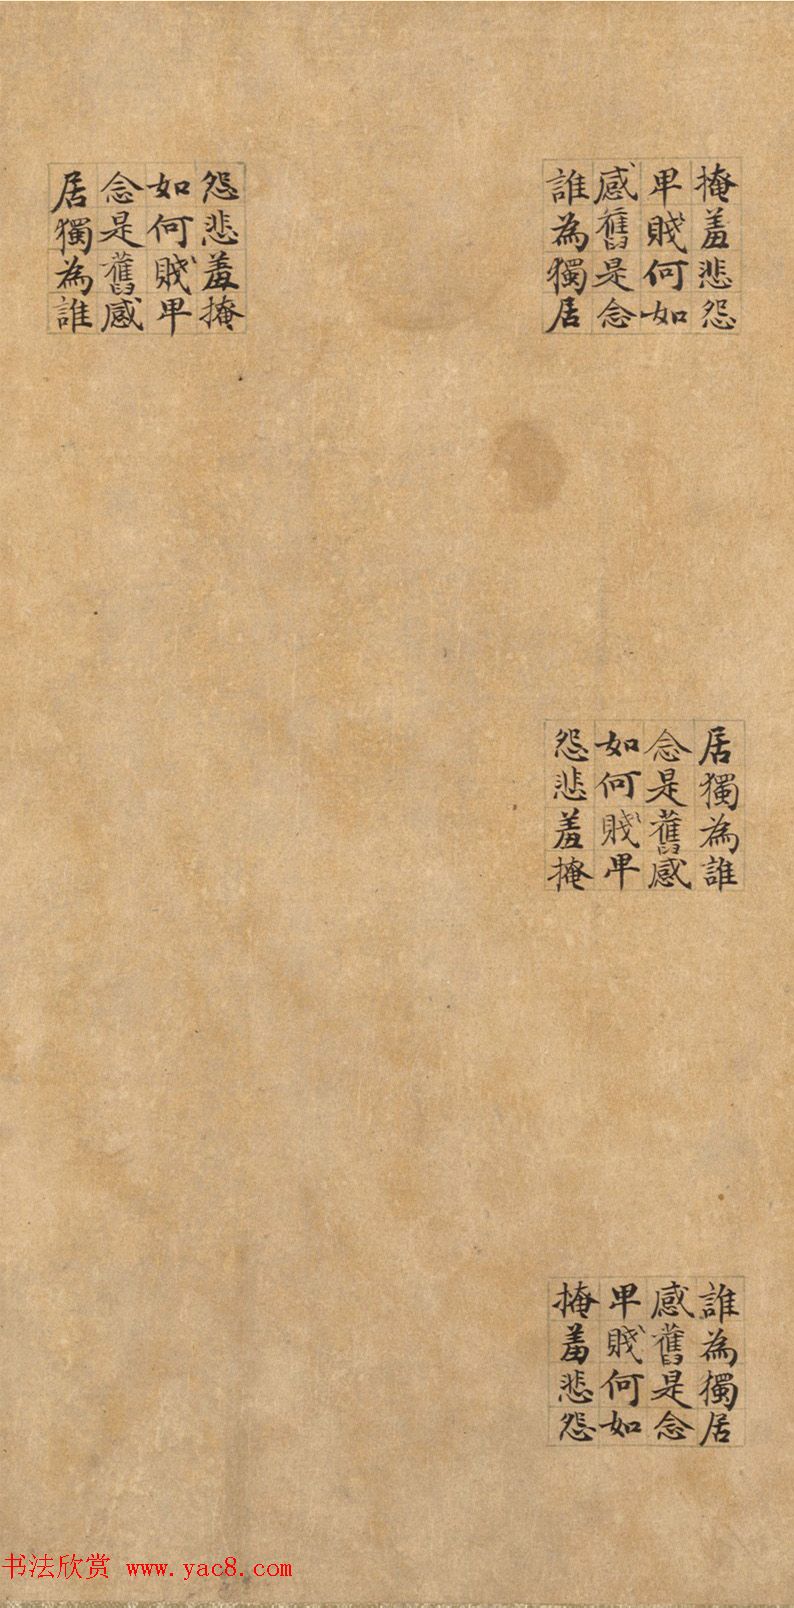 掩羞悲怨
卑賤何如
感舊是念
誰為獨居
怨悲羞掩
如何賤卑
念是舊感
居獨為誰
居獨為誰
念是舊感
如何賤卑
怨悲羞掩
誰為獨居
感舊是念
卑賤何如
掩羞悲怨
书法欣赏 www.yac8.com